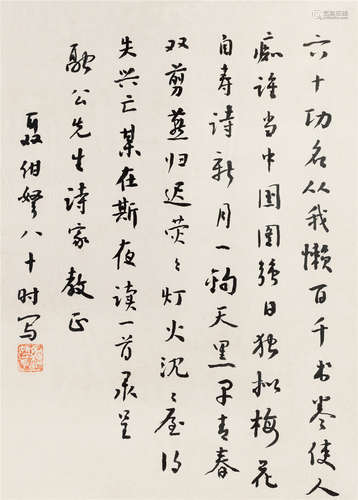 六十功名从我懒百千书卷使人
痴谁当中国图强日独拟梅花
自寿诗新月一钩天黑早青春
双剪燕归迟荧々灯火沉々屋得
失兴亡某在斯夜读一首录呈
融公先生诗家教正
聂绀弩八十时写